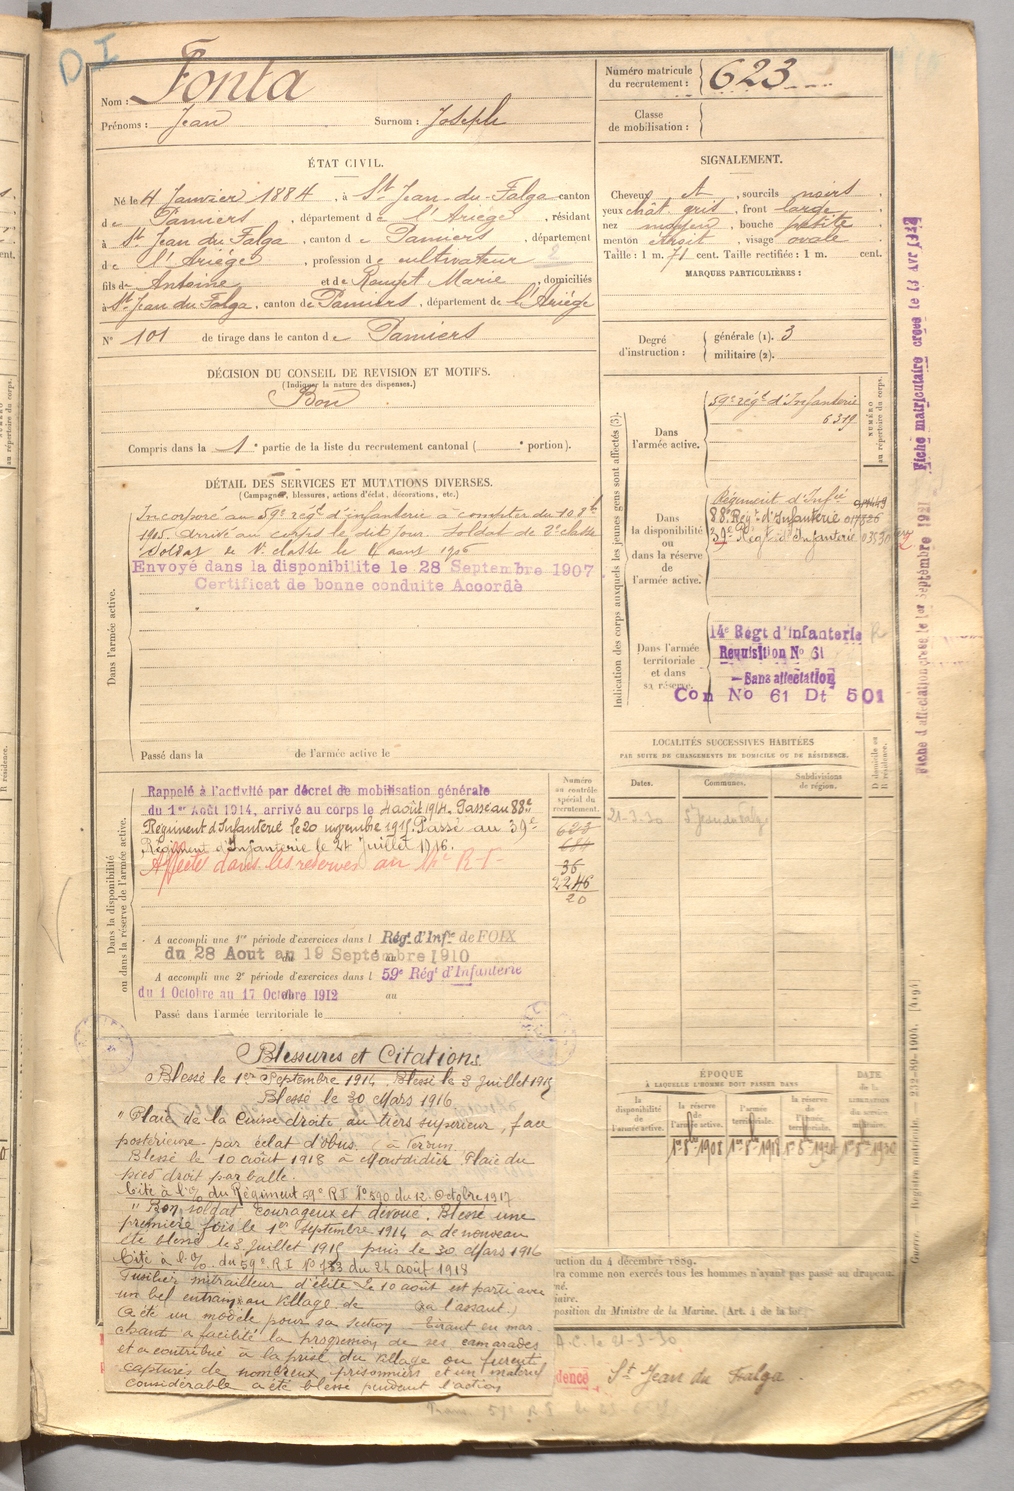 D I
Nom : Fonta
Prénoms : Jean Surnom : Joseph
Numéro matricule
du recrutement : 623
Classe
de mobilisation :
ÉTAT CIVIL.
Né le 4 Janvier 1884, à St Jean-du-Falga canton
de Pamiers, département de l'Ariège, résidant
à St Jean du Falga, canton de Pamiers, département
de l'Ariège, profession de cultivateur 2
fils de Antoine et de Rouzet Marie, domiciliés
à St Jean du Falga, canton de Pamiers, département de l'Ariège
N° 101 de tirage dans le canton de Pamiers
SIGNALEMENT.
Cheveux, sourcils noirs
yeux chât. gris, front large
nez moyen, bouche petite
menton étroit, visage ovale
Taille : 1 m. 71 cent. Taille rectifiée : 1 m. cent.
MARQUES PARTICULIÈRES :
Degré
d'instruction :
générale (1). 3
militaire (2).
DÉCISION DU CONSEIL DE REVISION ET MOTIFS.
(Indiquer la nature des dispenses.)
Bon
Compris dans la 1e partie de la liste du recrutement cantonal ( e portion).
DÉTAIL DES SERVICES ET MUTATIONS DIVERSES.
(Campagnes, blessures, actions d'éclat, décorations, etc.)
Dans l'armée active.
Incorporé au 59e régt d'infanterie à compter du
arrivé au corps le dit jour. Soldat de 2e classe
Soldat de 1e classe le
Envoyé dans la disponibilité le 28 Septembre 1907
Certificat de bonne conduite Accordé
Passé dans la de l'armée active le
Indication des corps auxquels les jeunes gens sont affectés (3).
NUMÉRO
au répertoire du corps.
Dans
l'armée active.
59e régt d'Infanterie
6319
Dans
la disponibilité
ou
dans la réserve
de
l'armée active.
Régiment d'Infie
88e Régt d'Infanterie
39e Régt d'Infanterie
Dans l'armée
territoriale
et dans
sa réserve.
14e Régt d'infanterie
Requisition No 61
—Sans affectation
Con No 61 Dt 501
Fiche matriculaire créée le 13 Avr
Fiche d'affectation créée le 1er Septembre 1921
Dans la disponibilité
ou dans la réserve de l'armée active.
Rappelé à l'activité par décret de mobilisation générale
du 1er Août 1914, arrivé au corps le 4 août 1914. Passé au 88e
Régiment d'Infanterie le 20 novembre 1915. Passé au 39e
Régiment d'Infanterie le 27 juillet 1916.
Affecté dans les réserves au 14e R I
A accompli une 1re période d'exercices dans l Régt d'Infie de FOIX
du 28 Aout au 19 Septembre 1910
A accompli une 2e période d'exercices dans l 59e Régt d'Infanterie
du 1 Octobre au 17 Octobre 1912 au
Passé dans l'armée territoriale le
Numéro
au contrôle
spécial du
recrutement.
623
684
36
2246
20
LOCALITÉS SUCCESSIVES HABITÉES
PAR SUITE DE CHANGEMENTS DE DOMICILE OU DE RÉSIDENCE.
Dates. Communes. Subdivisions
de région.
D domicile ou
R résidence.
21-3-30 St Jean du Falga
ÉPOQUE
À LAQUELLE L'HOMME DOIT PASSER DANS
la
disponibilité
de
l'armée active.
la réserve
de
l'armée active.
l'armée
territoriale.
la réserve
de
l'armée
territoriale.
DATE
de la
LIBÉRATION
du service
militaire.
1908
Blessures et Citations
Blessé le 1er Septembre 1914. Blessé le 3 juillet 1915
Blessé le 30 Mars 1916
"Plaie de la Cuisse droite au tiers supérieur, face
postérieure par éclat d'obus. (à Verdun
Blessé le 10 août 1918 à Montdidier Plaie du
pied droit par balle.
Cité à l'O/ du Régiment 59e R I N°590 du 12 Octobre 1917
"Bon soldat courageux et dévoué. Blessé une
première fois le 1er Septembre 1914 a de nouveau
été blessé le 3 juillet 1915 puis le 30 Mars 1916
Cité à l'O/ du 59e R I N° 733 du 24 août 1918
Fusilier mitrailleur d'élite le 10 août est parti avec
un bel entrain au village de (à l'assaut.)
A été un modèle pour sa section Tirant en mar-
chant a facilité la progression de ses camarades
et a contribué à la prise du village ou furent
capturés de nombreux prisonniers et un matériel
considérable a été blessé pendant l'action
uction du 4 décembre 1889.
ra comme non exercés tous les hommes n'ayant pas passé au drapeau.
iaire.
position du Ministre de la Marine. (Art. 4 de la loi
A.C. le 21-3-30
dence St Jean du Falga
Guerre. Registre matricule. — 232-89-1904. [4191]